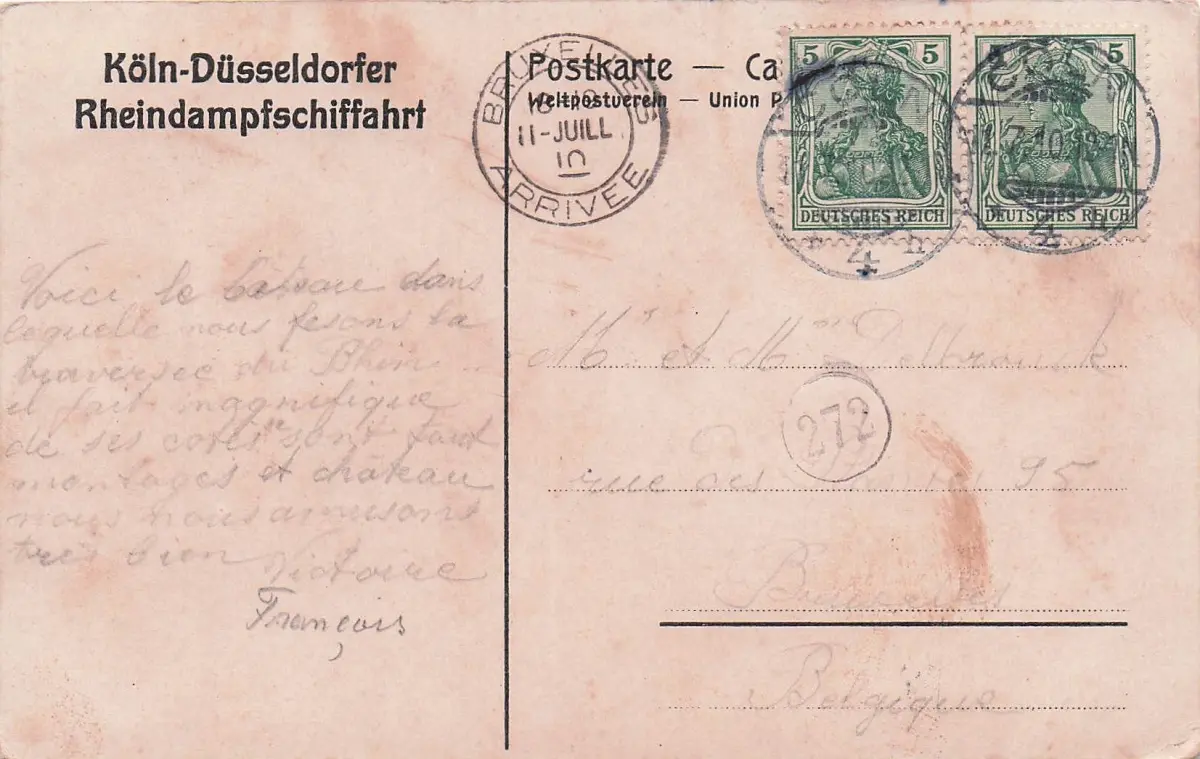 Köln-Düsseldorfer
Rheindampfschiffahrt
Postkarte — Ca
Weltpostverein — Union P
BRUXELLES
11-JUILL
10
ARRIVEE
5 5
DEUTSCHES REICH
5 5
DEUTSCHES REICH
7.10
4 n
4
Voici le bateau dans
lequelle nous fesons la
traversée du Rhin
il fait magnifique
de ses cotés sont tout
montages et château
nous nous amusons
tres bien Victoire
François
Mr et Mme
272
rue des 95
Bruxelles
Belgique